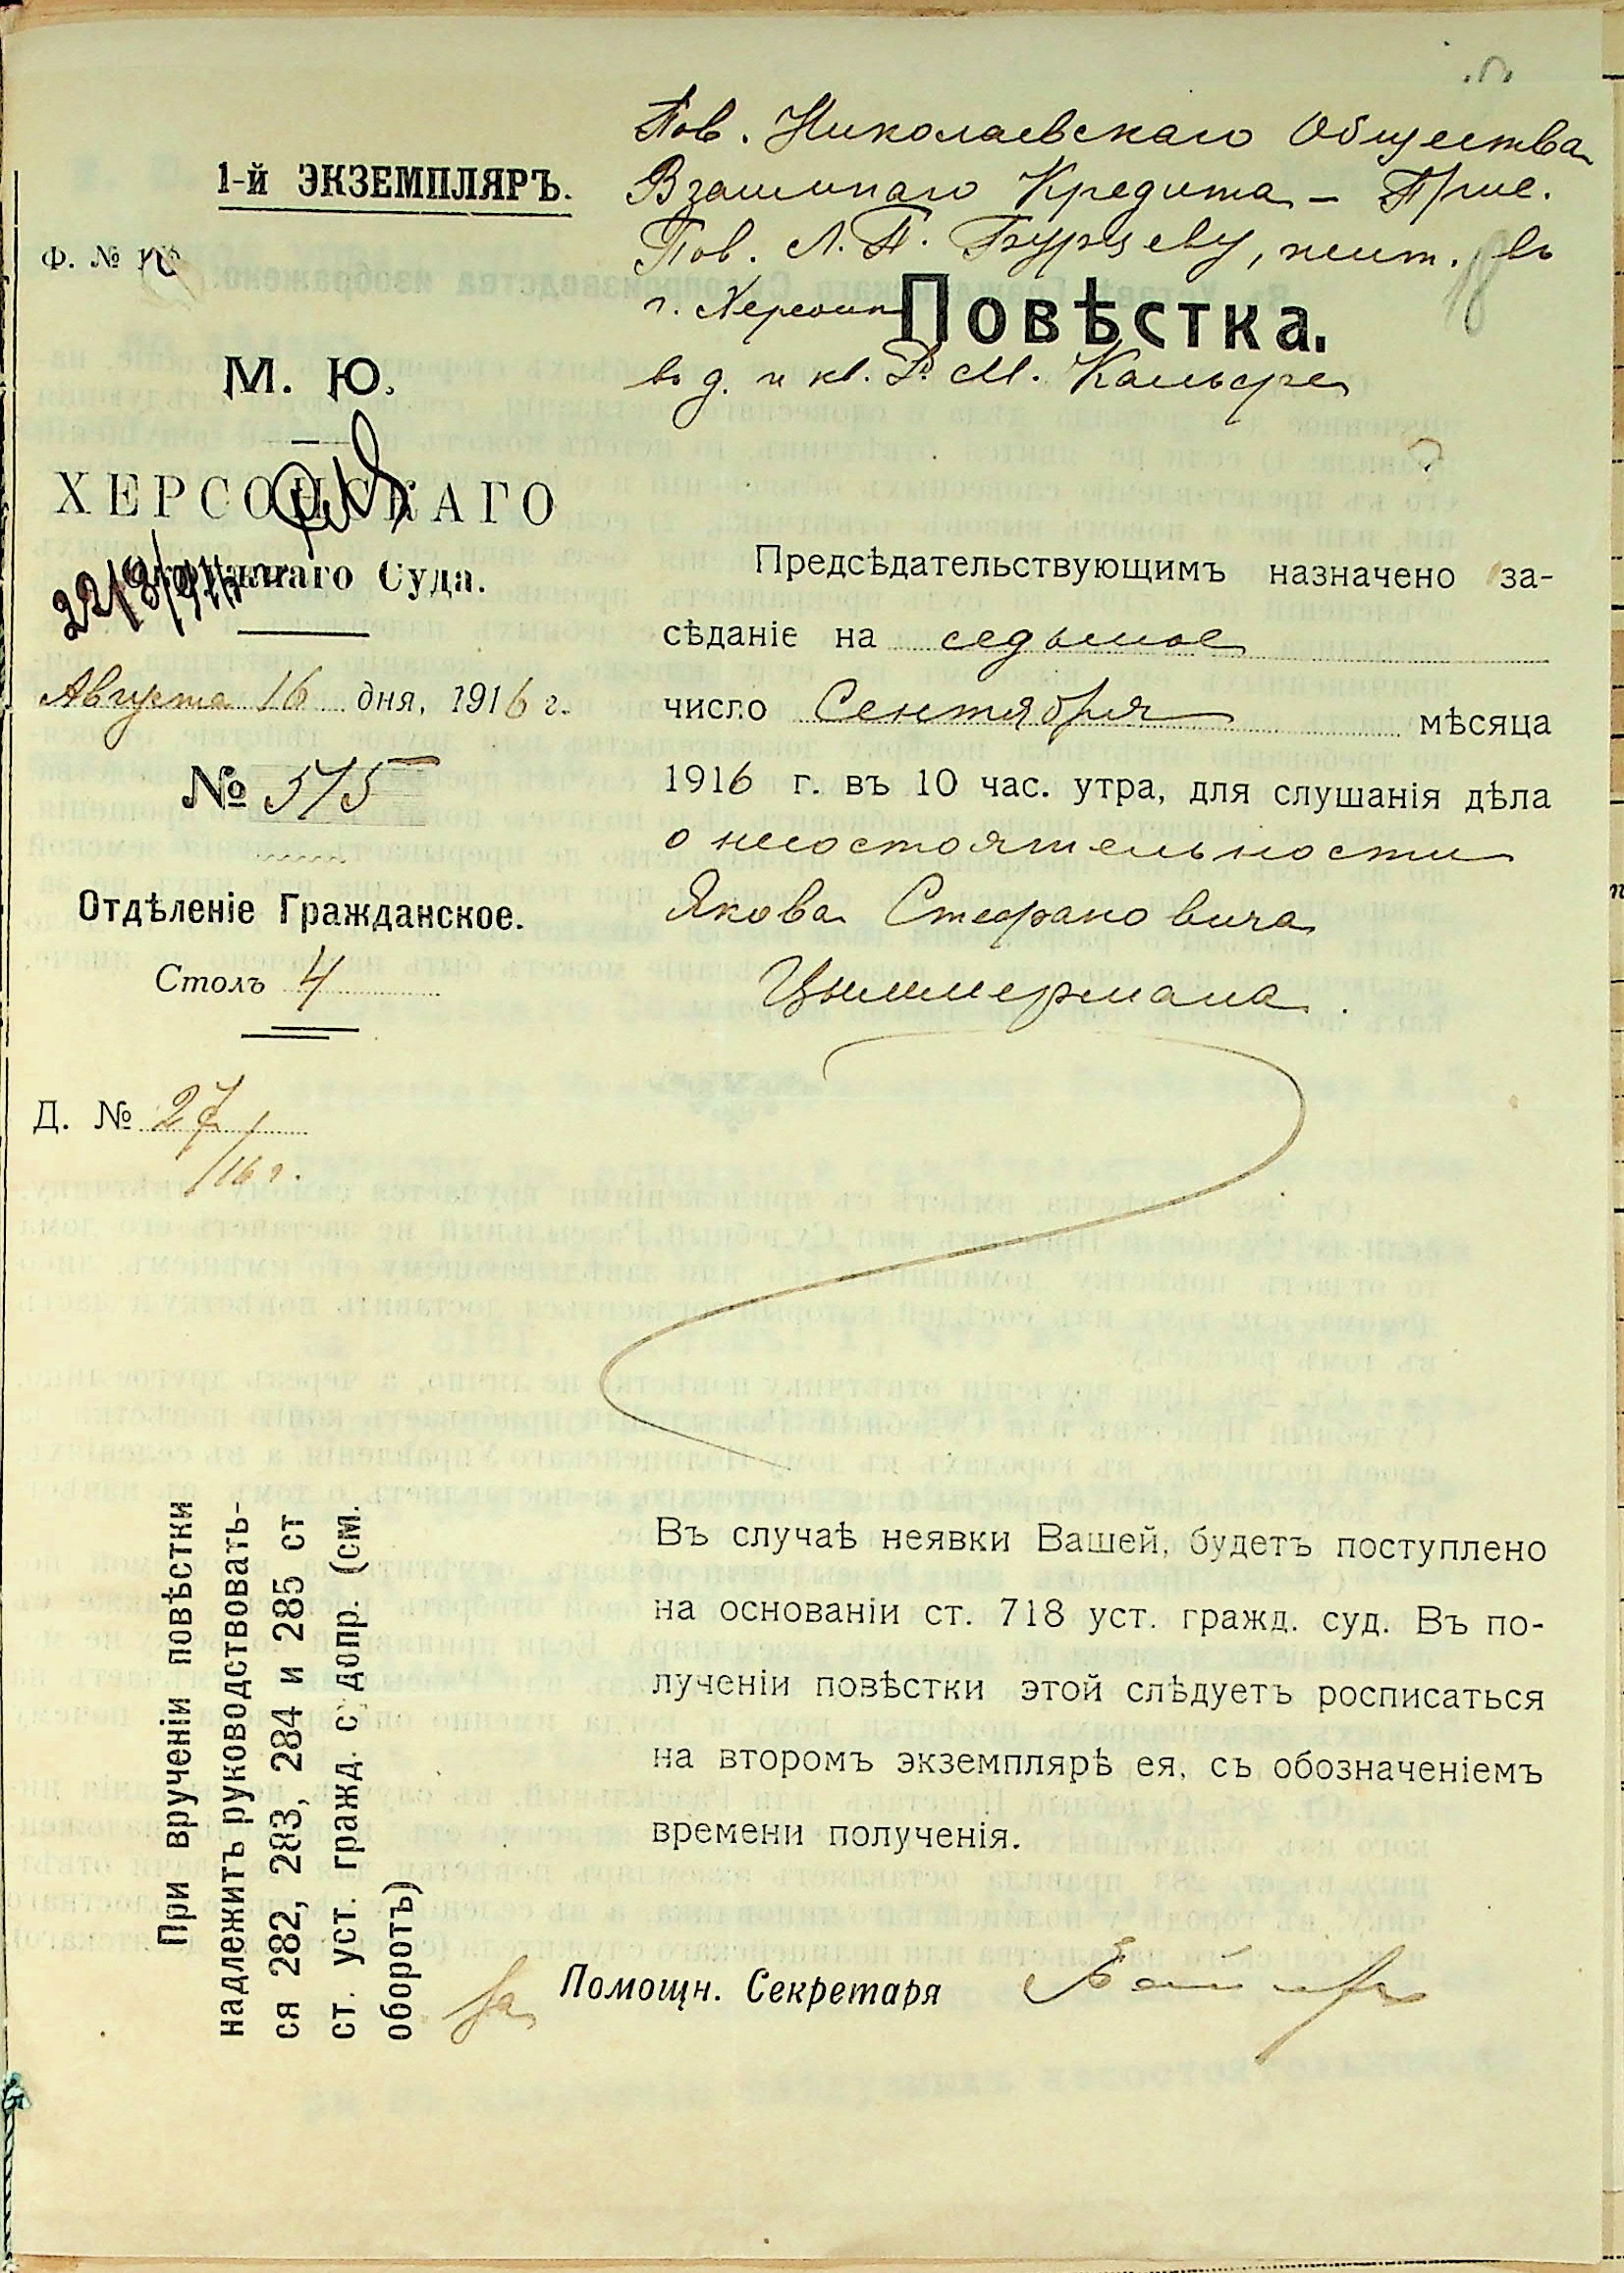 Пов. Николаевскаго Общества
Взаимнаго Кредита – Прис.
Пов. Л. П. Бурцеву, жит. въ
г. Херсонѣ
въ д. и кв. М. Кальфа
1-й ЭКЗЕМПЛЯРЪ.
Ф. №
18
Повѣстка.
М. Ю.
ХЕРСОНСКАГО
Окружнаго Суда.
22/8/916
Августа 16 дня, 1916 г.
№ 515
Отдѣленіе Гражданское.
Столъ 4
Д. № 27
/16 г.
Предсѣдательствующимъ назначено за-
сѣданіе на седьмое
число Сентября мѣсяца
1916 г. въ 10 час. утра, для слушанія дѣла
о несостоятельности
Якова Стефановича
Циммермана.
Въ случаѣ неявки Вашей, будетъ поступлено
на основаніи ст. 718 уст. гражд. суд. Въ по-
лученіи повѣстки этой слѣдуетъ росписаться
на второмъ экземплярѣ ея, съ обозначеніемъ
времени полученія.
При врученіи повѣстки
надлежитъ руководствовать-
ся 282, 283, 284 и 285 ст
ст. уст. гражд. с допр. (см.
оборотъ)
За Помощн. Секретаря